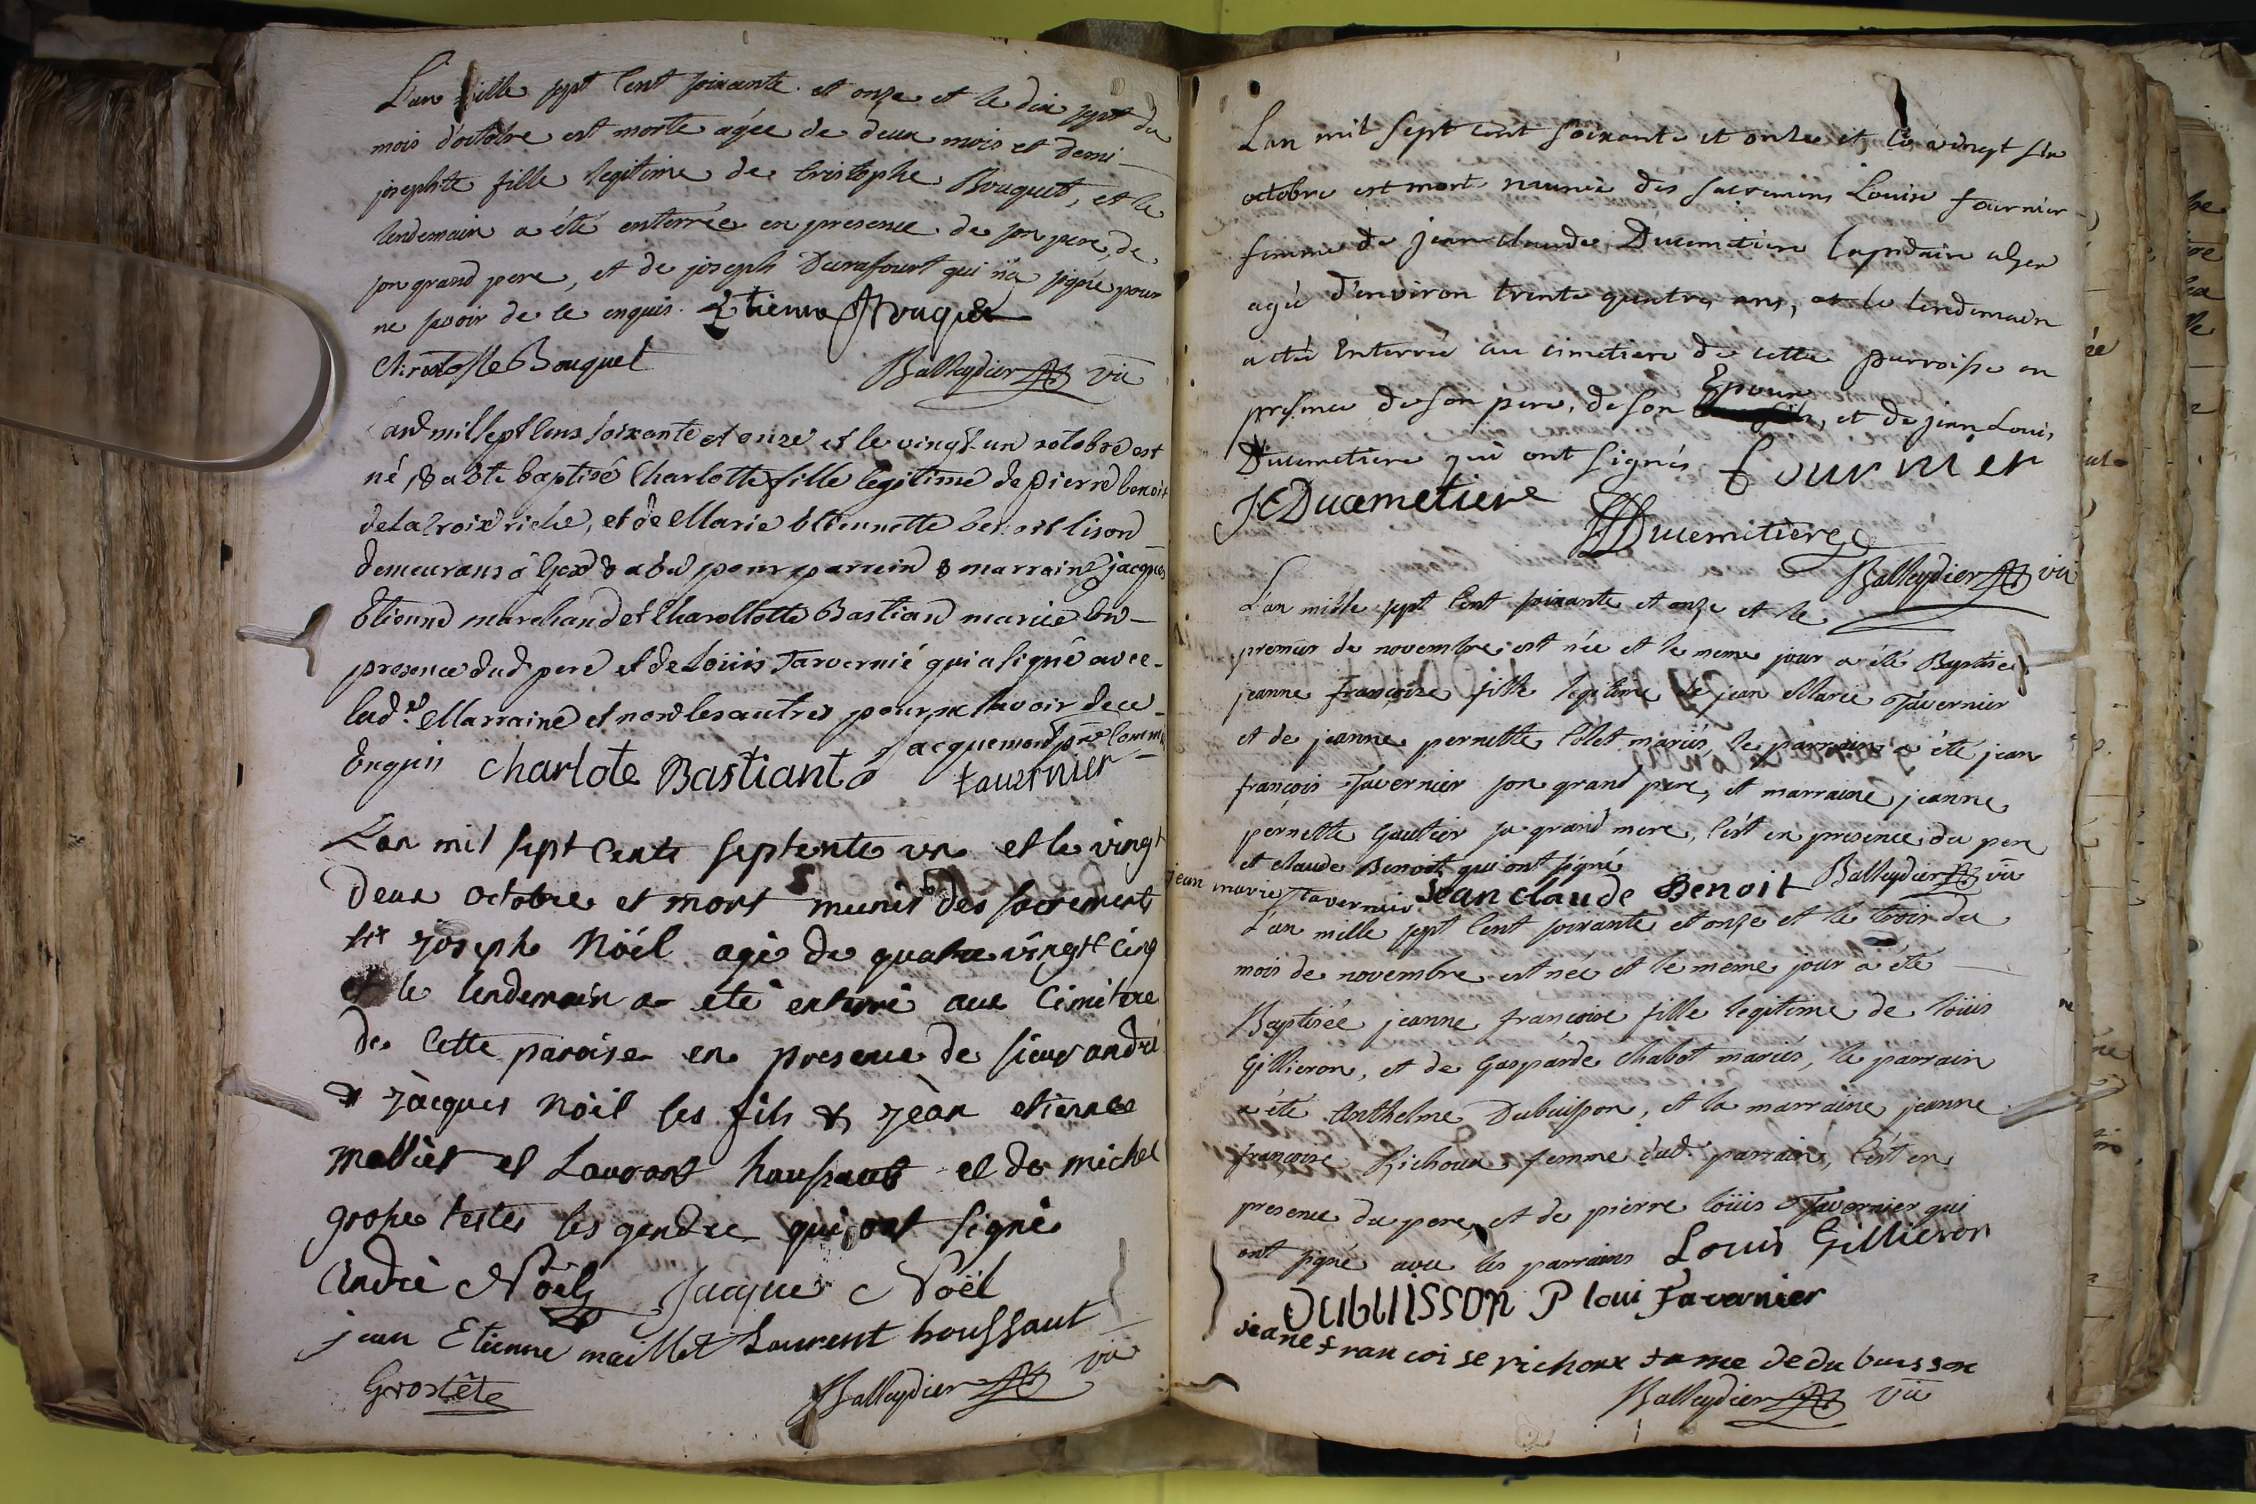 L'an mille sept cent soixante et onze et le dix sept du
mois d'octobre est morte agée de deux mois et demi
josephte fille legitime de Cristophe Bouquet, et le
lendemain a été enterrée en presence de son pere, de
son grand pere, et de joseph Durafourt qui n'a signé pour
ne savoir de ce enquis. Etienne Bouquet
Christofle Bouquet Balleydier vic
L'and mil sept Cens soixante et onze et le vingt un octobre est
né, & a été baptisé Charlotte fille legitime de pierre benoit
de la Croix riche, et de Marie Etiennette benoit lison
demeurans à Gex & a eu pour parrein & marraine jacques
Etienne marchand et Charollotte Bastian mariée En
presence dud pere et de Loüis Tavernié qui a signé avec
lad.e Marraine et non les autres pour ne savoir de ce
Enquis charlote Bastiant jacquemond pre comme
tavernier
L'an mil sept Cents septente un et le vingt
deux octobre et mort munis des sacrements
sr joseph Nöél agé de quatre vingt Cinq
et le lendemain a eté enterré aux Cimitere
de Cette paroise en presence de sieur andré
& jàcques Nöèl ses fils & jèan etienne
mallièt et Laurant hausaut et de michel
grose testes ses gendre qui ont signé
andrè Nöél Jacque Nöël
jean Etienne maillet Laurent houssaut
Grostête Balleydier vic
L'an mil sept cent soixante et onze et le vingt six
octobre est morte munie des sacremens Louise fournier
femme de jean claude Ducimetiere lapidaire a gex
agée d'environ trente quatre ans, et le lendemain
a été Enterrée au cimetiere de cette parroisse en
presence de son pere, de son Epoux, et de jean Louis
Ducimetiere qui ont signés fournier
JC Ducemetiere
JL Ducemitiere
Balleydier vic
L'an mille sept cent soixante et onze et le
premier de novembre est née et le meme jour a été Baptisée
jeanne françoise fille legitime de jean Marie Tavernier
et de jeanne pernette Colet mariés, le parrain a été jean
françois Tavernier son grand pere, et marraine jeanne
pernette Gautier sa grand mere, c'est en presence du pere
et claude Benoit qui ont signé Balleydier vic
jean marie tavernier Jean claude Benoit
L'an mille sept cent soixante et onze et le trois du
mois de novembre est née et le meme jour a été
Baptisée jeanne françoise fille legitime de loüis
Gillieron, et de Gasparde Chabot mariés, le parrain
a été Anthelme Dubuisson, et la marraine jeanne
françoise Richoux femme dud. parrain, c'est en
presence du pere, et de pierre loüis Tavernier qui
ont signé avec les parrains Louis Gillieron
DUbUISSON P loui Tavernier
jeane francoise richoux fame de du buisson
Balleydier vic